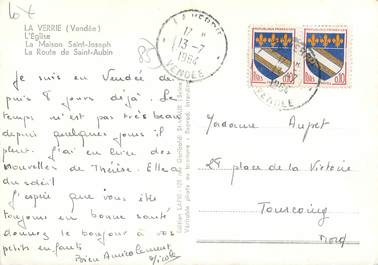 LA VERRIE (Vendée)
L'Eglise
La Maison Saint-Joseph
La Route de Saint-Aubin
LA VERRIE
13-7
1964
VENDÉE
0,10
0,10
Je suis en Vendée de
puis 8 jours déjà. Le
temps n'est pas très beau
depuis quelques jours il
pleut. J'ai eu hier des
nouvelles de Thérèse. Elle a
du soleil
J'espère que vous êtes
toujours en bonne santé
donnez le bonjour à vos
petits enfants
Bien Amicalement
Nicole
Madame
28 place de la Victoire
Tourcoing
Nord